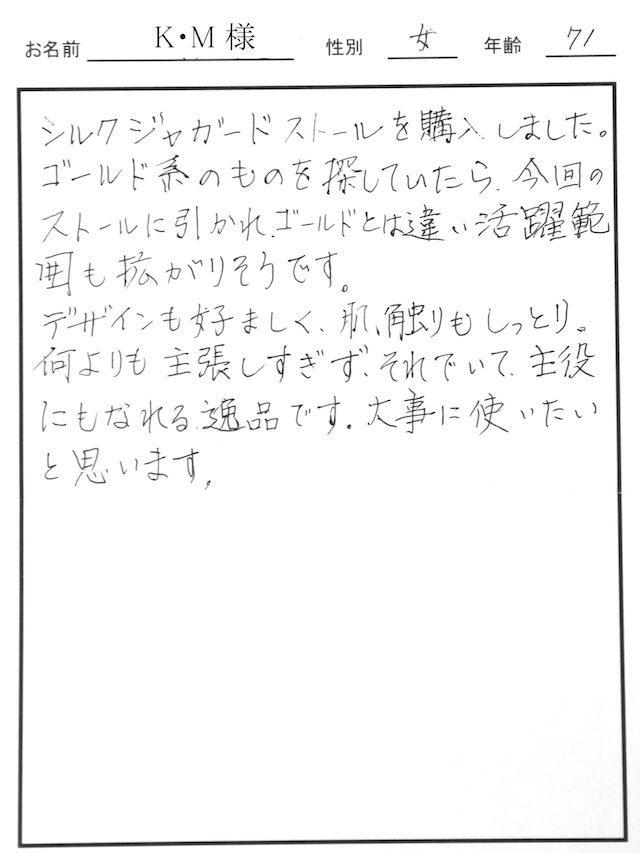 お名前 K・M様 性別 女 年齢 71
シルクジャガードストールを購入しました。
ゴールド系のものを探していたら、今回の
ストールに引かれ、ゴールドとは違い活躍範
囲も拡がりそうです。
デザインも好ましく、肌触りもしっとり。
何よりも主張しすぎず、それでいて、主役
にもなれる逸品です。大事に使いたい
と思います。